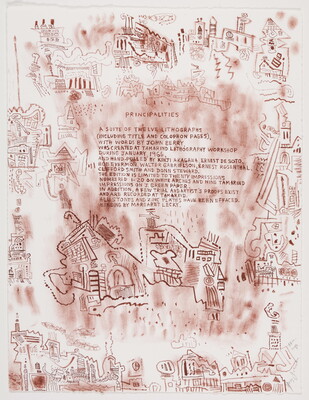 PRINCIPALITIES
A SUITE OF TWELVE LITHOGRAPHS
(INCLUDING TITLE AND COLOPHON PAGES),
WITH WORDS BY JOHN BERRY
WAS CREATED AT TAMARIND LITHOGRAPHY WORKSHOP
DURING JANUARY 1966
AND HAND-PULLED BY KINJI AKAGAWA, ERNEST DE SOTO,
ROBERT EVERMON, WALTER GABRIELSON, ERNEST ROSENTHAL,
CLIFFORD SMITH AND DONN STEWARD.
THE EDITION IS LIMITED TO TWENTY IMPRESSIONS
NUMBERED 1-20 ON WHITE ARCHES AND NINE TAMARIND
IMPRESSIONS ON J. GREEN PAPER.
IN ADDITION, A FEW TRIAL AND ARTIST'S PROOFS EXIST
AND ARE RECORDED AT TAMARIND.
ALL STONES AND ZINC PLATES HAVE BEEN EFFACED.
BINDING BY MARGARET LECKY.